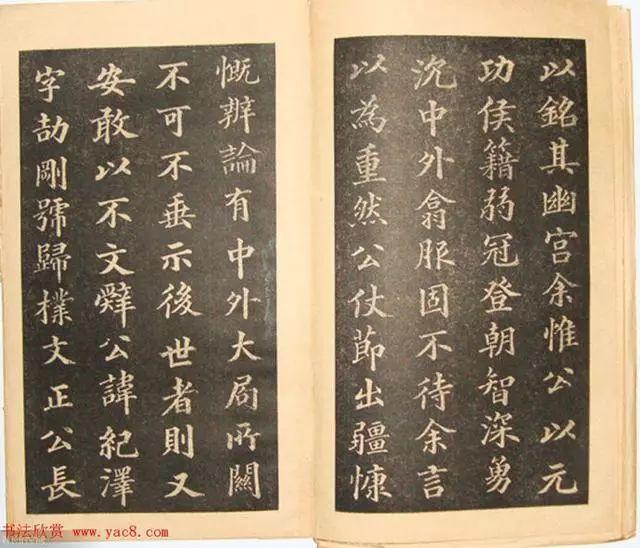 以銘其幽宮余惟公以元
功侯籍弱冠登朝智深勇
沉中外翕服固不待余言
以為重然公仗節出疆慷
慨辨論有中外大局所關
不可不垂示後世者則又
安敢以不文辭公諱紀澤
字劼剛號歸樸文正公長
书法欣赏 www.yac8.com